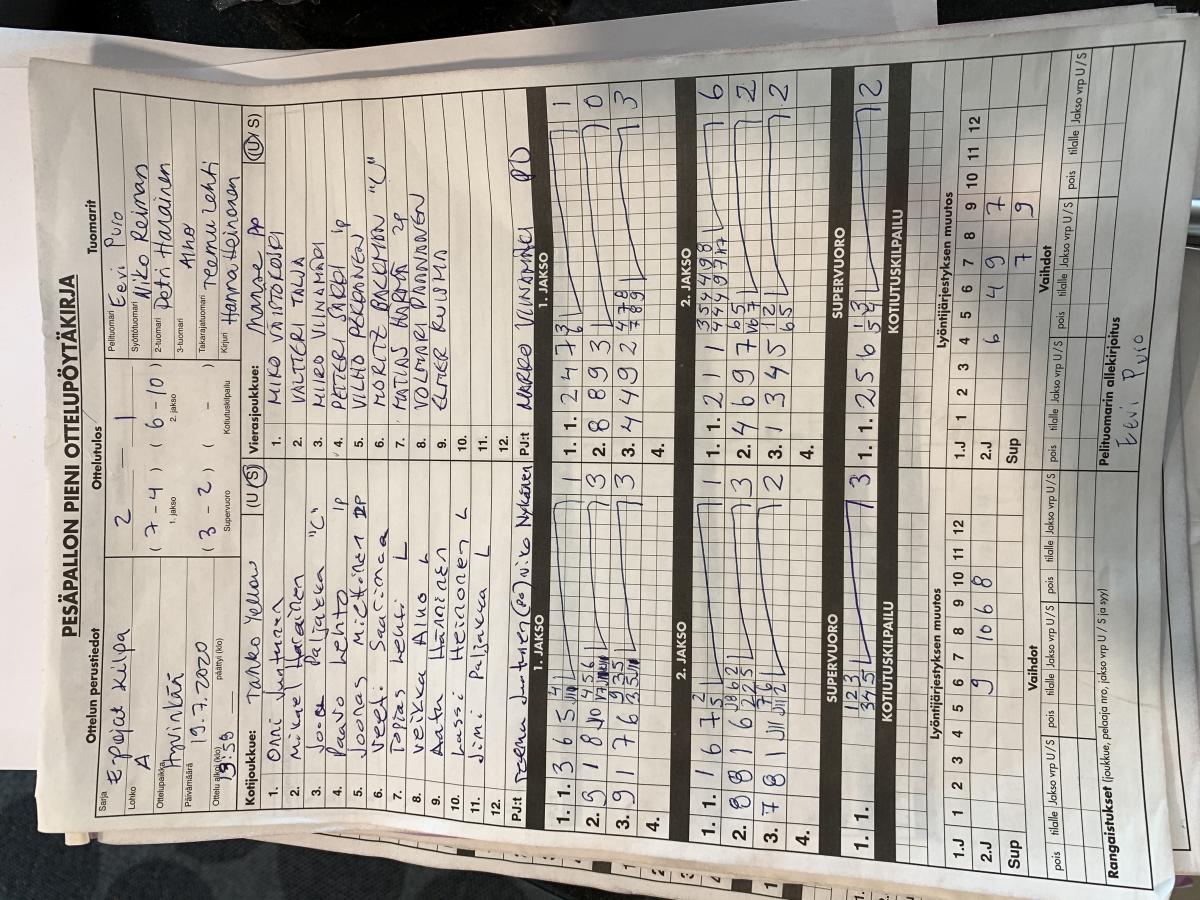 PESÄPALLON PIENI OTTELUPÖYTÄKIRJA
Ottelun perustiedot
Sarja
Lohko A
Ottelupaikka Hyvinkää
Päivämäärä 19.7.2020
Ottelu alkoi (klo) päättyi (klo)
Ottelutulos
2 — 1
( 7 - 4 ) ( 6 - 10 )
1. jakso 2. jakso
( 3 - 2 ) ( - )
Supervuoro Kotiutuskilpailu
Tuomarit
Pelituomari Eevi Puro
Syöttötuomari Niko Reiman
2-tuomari Petri Harainen
3-tuomari Alho
Takarajatuomari Teemu Lehti
Kirjuri Hanna Heinonen
Kotijoukkue: Tahko Yellow (U S)
1. Onni Juntunen
2. Mikael Harainen
3. Joona Paljakka "C"
4. Paavo Lehto 1P
5. Joonas Miettinen 2P
6. Veeti Saarimaa
7. Topias Lehti L
8. Veikka Alho L
9. Aatu Hänninen
10. Lassi Heinonen L
11. Jimi Paljakka L
12.
PJ:t Teemu Juntunen (PO) Niko Nykänen
Vierasjoukkue: Manse PP (U S)
1. MIKO VÄITÖKOSKI
2. VALTTERI TALJA
3. MIIRO VIINAMÄKI
4. PETTERI SÄRKI 1P
5. VILHO PEKKANEN
6. MORITZ BACKMAN "C"
7. MATIAS HÄRMÄ 2P
8. VOLMARI PANNANEN
9. ELMER KUISMA
10.
11.
12.
PJ:t MARKO VIINAMÄKI PJ
1. JAKSO 1. JAKSO
1. 1. 3 6 5 1
2. 9 1 8 J10 3
3. 9 1 7 6 3
4.
1. 1. 2 4 7 1
2. 8 8 9 3 0
3. 4 4 9 2 3
4.
2. JAKSO 2. JAKSO
1. 1. 1 6 7 1
2. 8 8 1 6 3
3. 7 8 1 J11 2
4.
1. 1. 2 1 1 6
2. 4 6 9 7 2
3. 1 3 4 5 2
4.
SUPERVUORO SUPERVUORO
1. 1. 3
1. 1. 2 5 6 2
KOTIUTUSKILPAILU KOTIUTUSKILPAILU
Lyöntijärjestyksen muutos
1.J 1 2 3 4 5 6 7 8 9 10 11 12
2.J 9 10 6 8
Sup
Lyöntijärjestyksen muutos
1.J 1 2 3 4 5 6 7 8 9 10 11 12
2.J 6 4 9 7
Sup 7 9
Vaihdot
pois tilalle Jakso vrp U/S pois tilalle Jakso vrp U/S pois tilalle Jakso vrp U/S
Vaihdot
pois tilalle Jakso vrp U/S pois tilalle Jakso vrp U/S pois tilalle Jakso vrp U/S
Rangaistukset (joukkue, pelaaja nro, jakso vrp U / S ja syy)
Pelituomarin allekirjoitus
Eevi Puro